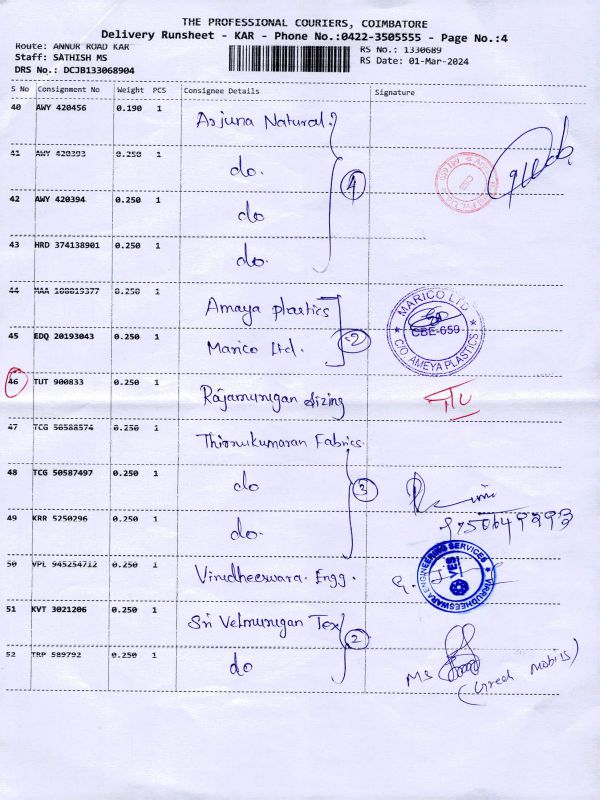 THE PROFESSIONAL COURIERS, COIMBATORE
Delivery Runsheet - KAR - Phone No.:0422-3505555 - Page No.:4
Route: ANNUR ROAD KAR
RS No.: 1330689
Staff: SATHISH MS
RS Date: 01-Mar-2024
DRS No.: DCJB133068904
S No Consignment No Weight PCS Consignee Details Signature
40 AWY 420456 0.190 1 Arjuna Natural
41 AWY 420393 0.250 1 do.
42 AWY 420394 0.250 1 do
43 HRD 374138901 0.250 1 do.
4
44 MAA 188819377 0.250 1 Amaya plastics
45 EDQ 20193043 0.250 1 Marico Ltd.
2
MARICO LTD
CBE-659
C/O. AMEYA PLASTICS
46 TUT 900833 0.250 1 Rajamurugan sizing
47 TCG 50588574 0.250 1 Thirnukumaran Fabrics.
48 TCG 50587497 0.250 1 do
49 KRR 5250296 0.250 1 do.
3
50 VPL 945254712 0.250 1 Virudheeswara. Engg.
VIRRUDHEESWARA ENGINEERING SERVICES
VES
51 KVT 3021206 0.250 1 Sri Velmurugan Tex
52 TRP 589792 0.250 1 do
2
MS